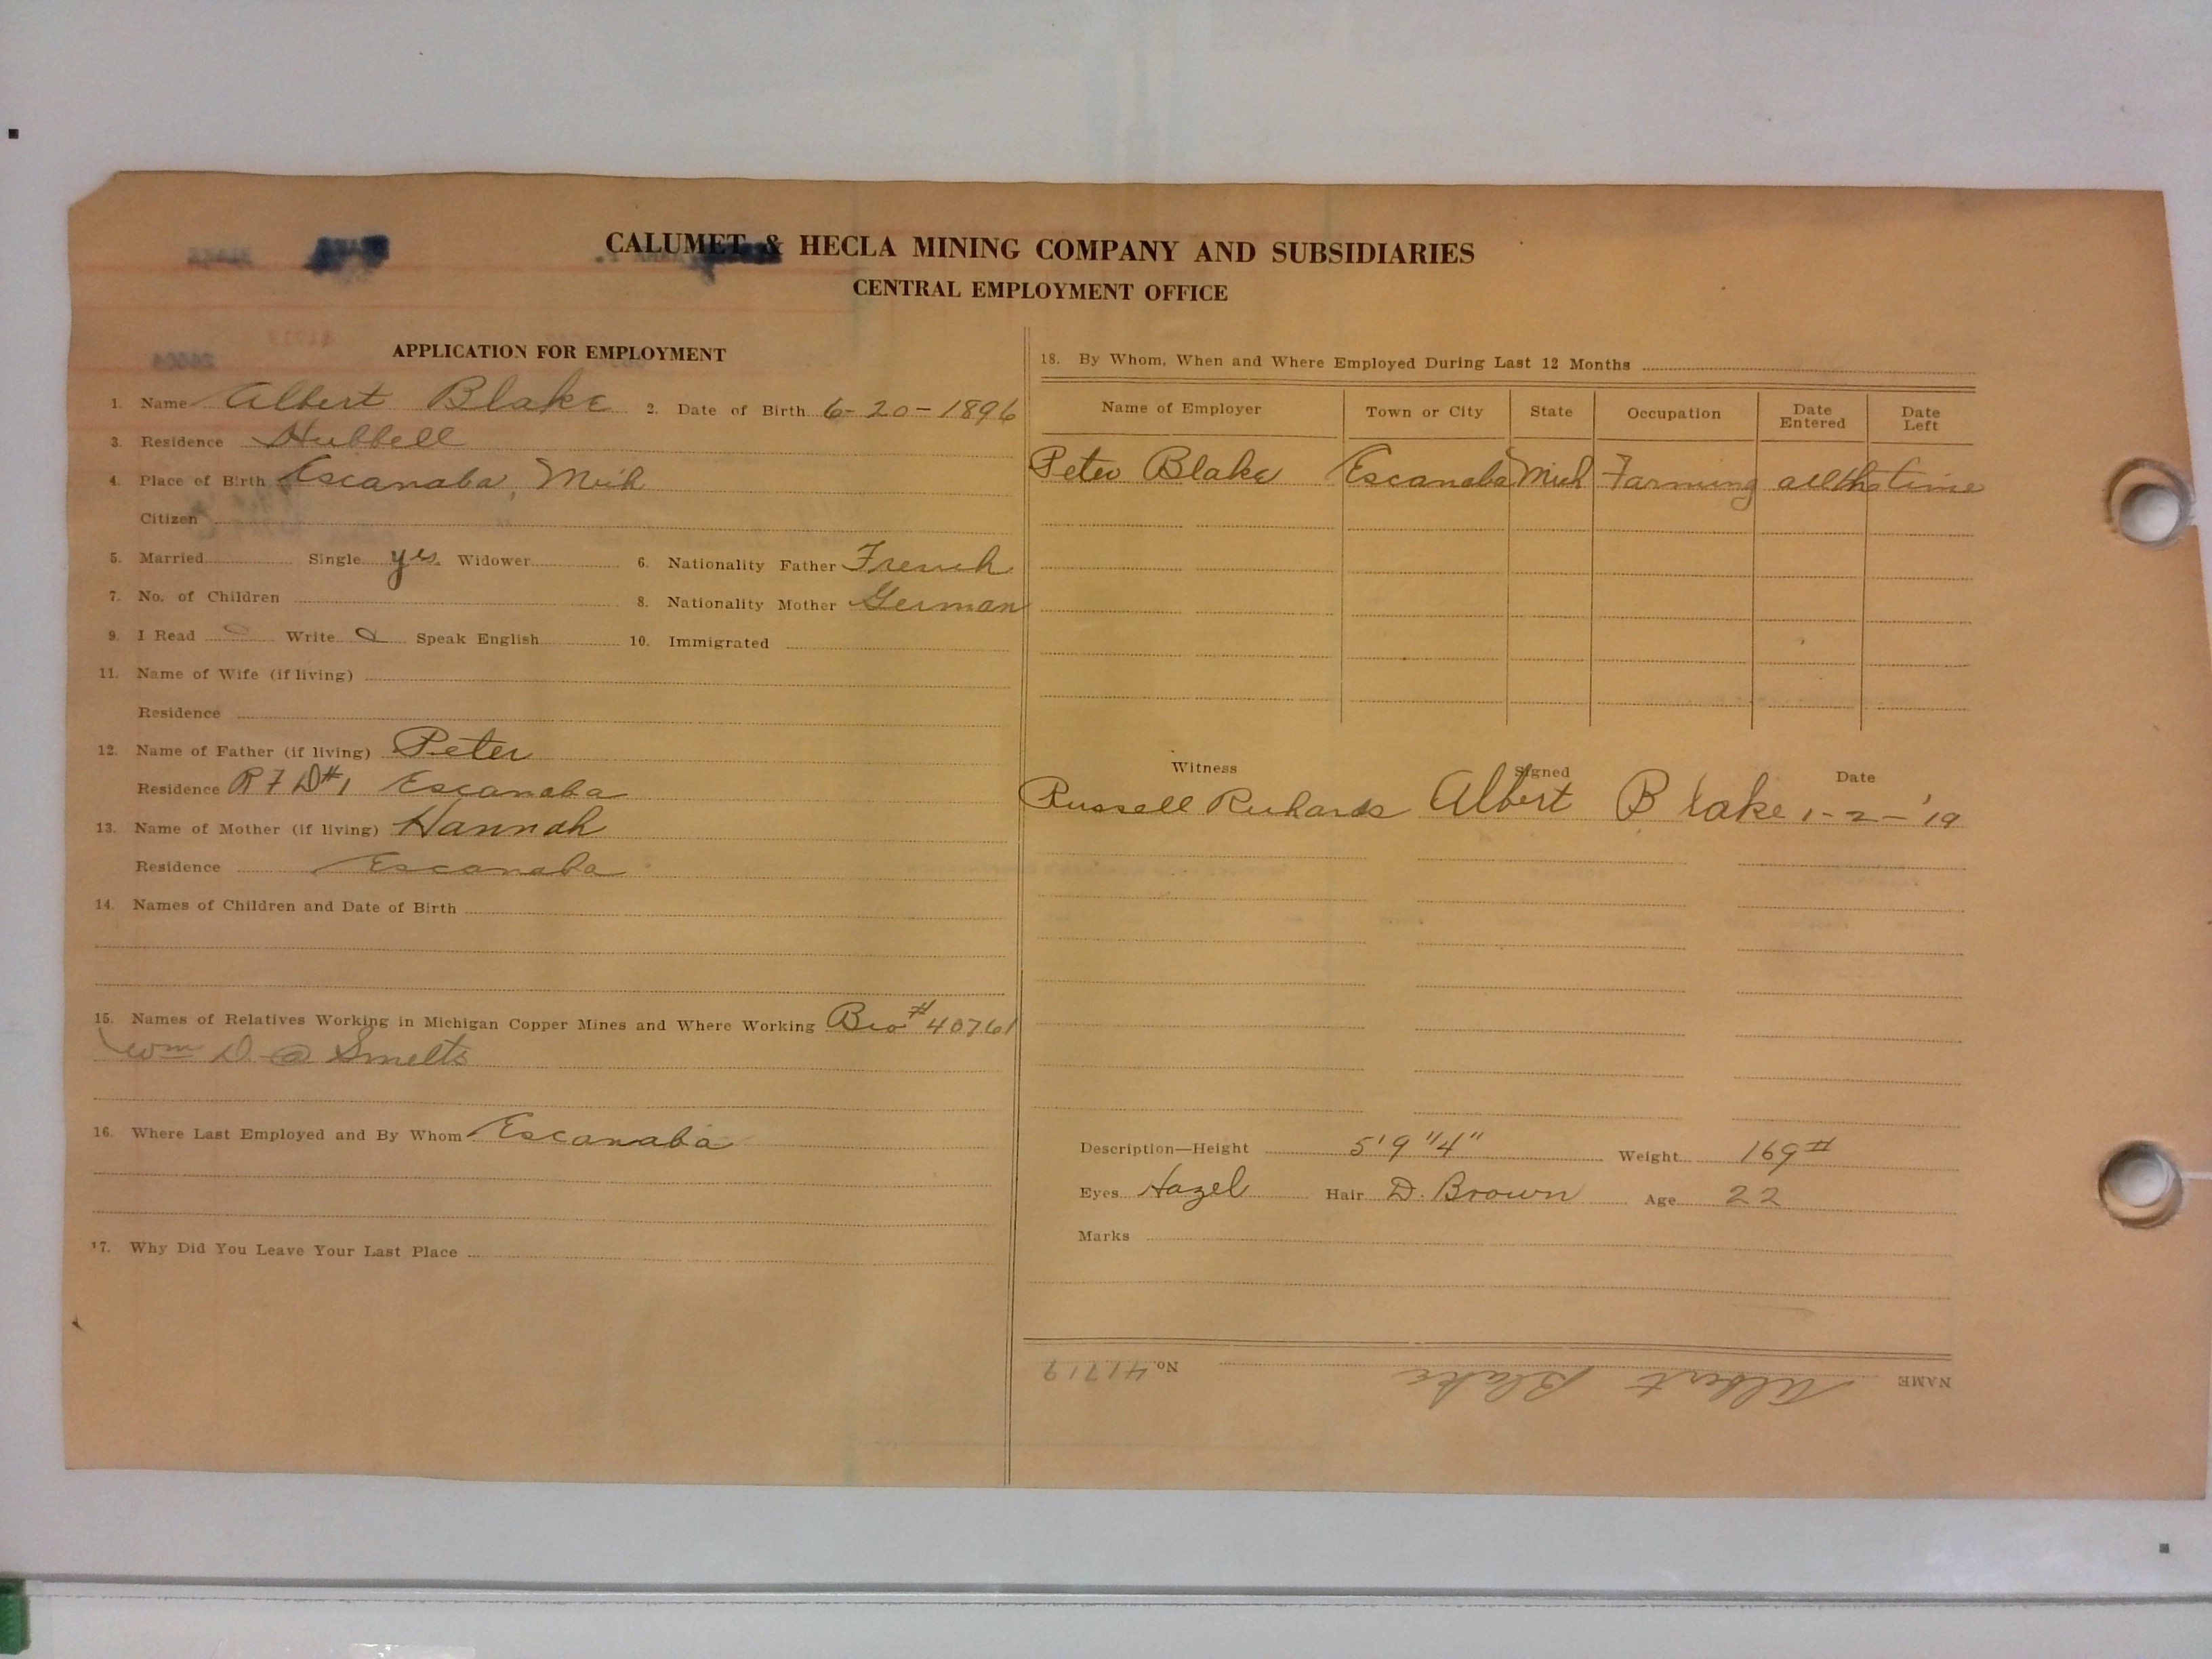 CALUMET & HECLA MINING COMPANY AND SUBSIDIARIES
CENTRAL EMPLOYMENT OFFICE
APPLICATION FOR EMPLOYMENT
1. Name Albert Blake 2. Date of Birth 6-20-1896
3. Residence Hubbell
4. Place of Birth Escanaba, Mich
Citizen
5. Married Single yes. Widower 6. Nationality Father French
7. No. of Children 8. Nationality Mother German
9. I Read Write Speak English 10. Immigrated
11. Name of Wife (if living)
Residence
12. Name of Father (if living) Peter
Residence R F D #1 Escanaba
13. Name of Mother (if living) Hannah
Residence Escanaba
14. Names of Children and Date of Birth
15. Names of Relatives Working in Michigan Copper Mines and Where Working Bro #40761
Wm D. @ Smelts
16. Where Last Employed and By Whom Escanaba
17. Why Did You Leave Your Last Place
18. By Whom, When and Where Employed During Last 12 Months
Name of Employer Town or City State Occupation Date Entered Date Left
Peter Blake Escanaba Mich Farming all the time
Witness Signed Date
Russell Richards Albert Blake 1-2-'19
Description—Height 5'9"4" Weight 169#
Eyes Hazel Hair D. Brown Age 22
Marks
NAME Albert Blake No. 41719